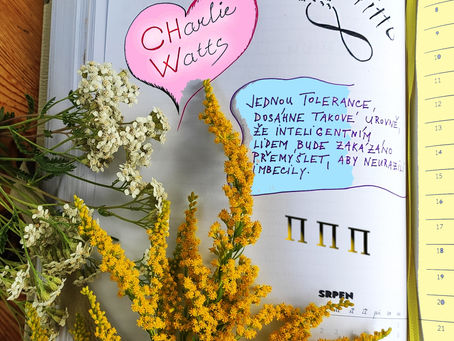 CHarlie
Watts
JEDNOU TOLERANCE,
DOSÁHNE TAKOVÉ ÚROVNĚ,
ŽE INTELIGENTNÍM
LIDEM BUDE ZAKÁZÁNO
PŘEMÝŠLET, ABY NEURAZILI
IMBECILY.
Π Π Π
SRPEN
8
9
10
11
12
13
14
15
16
17
18
19
20
21